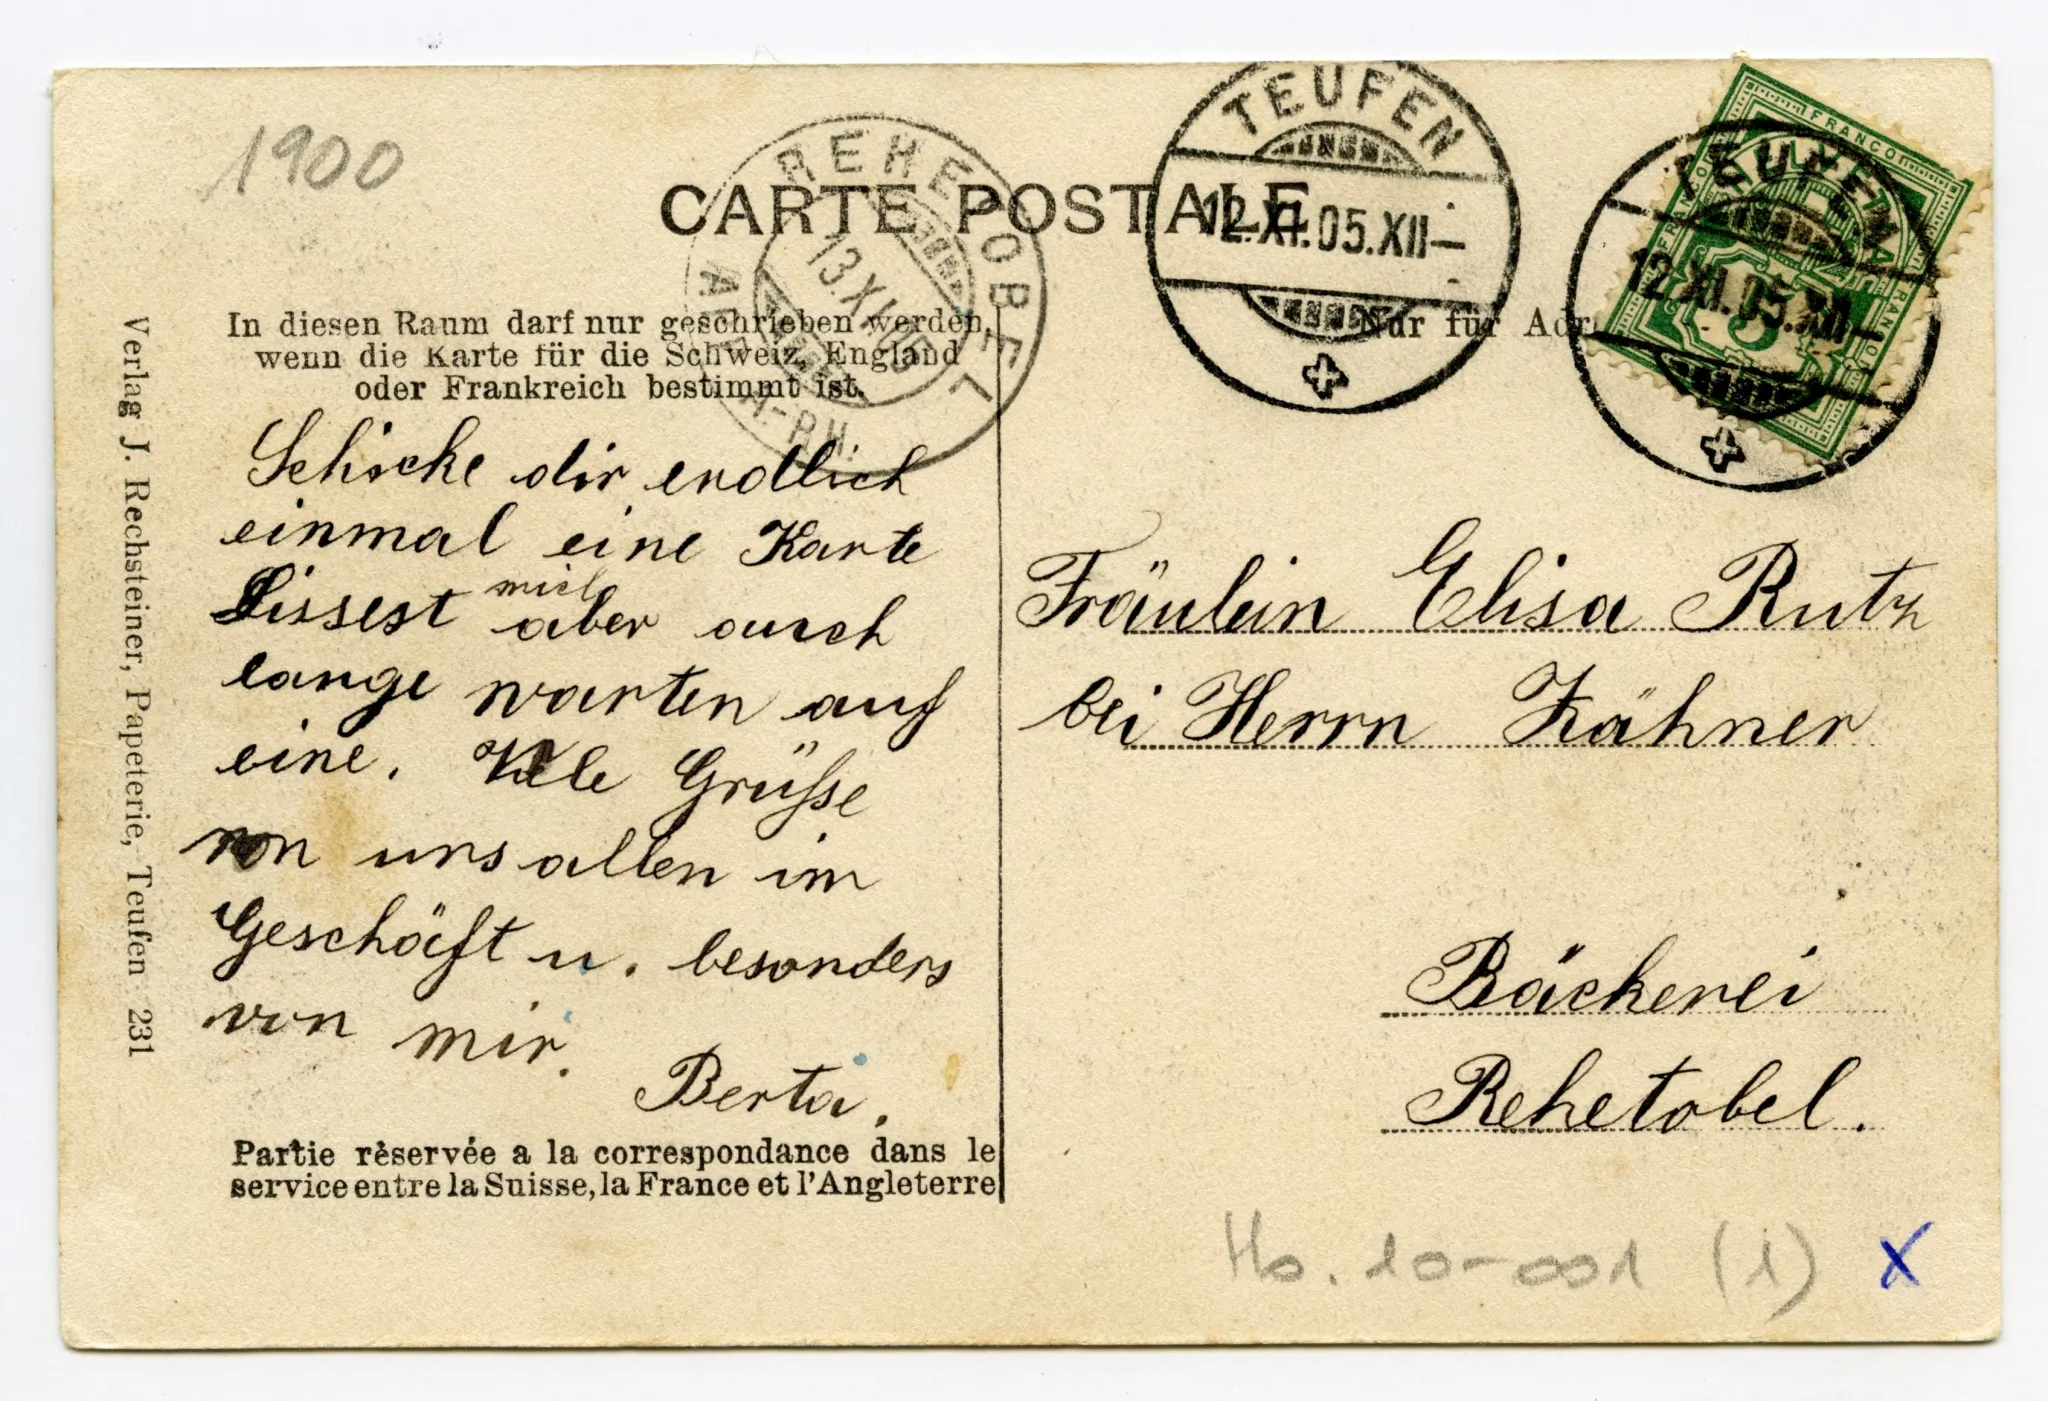 1900
CARTE POSTALE
REHETOBEL
13.XI.05
APP. A-RH.
TEUFEN
12.XI.05.XII—
TEUFEN
12.XI.05.XII—
HELVETIA
FRANCO
FRANCO
FRANCO
5
In diesen Raum darf nur geschrieben werden,
wenn die Karte für die Schweiz, England
oder Frankreich bestimmt ist.
Nur für Adr
Schicke dir endlich
einmal eine Karte
Lissest mich aber auch
lange warten auf
eine. Viele Grüsse
von uns allen im
Geschäft u. besonders
von mir.
Berta.
Partie réservée a la correspondance dans le
service entre la Suisse, la France et l'Angleterre
Verlag J. Rechsteiner, Papeterie, Teufen 231
Fräulein Elisa Rutz
bei Herrn Zähner
Bäckerei
Rehetobel.
Ho. 10-001 (1) X